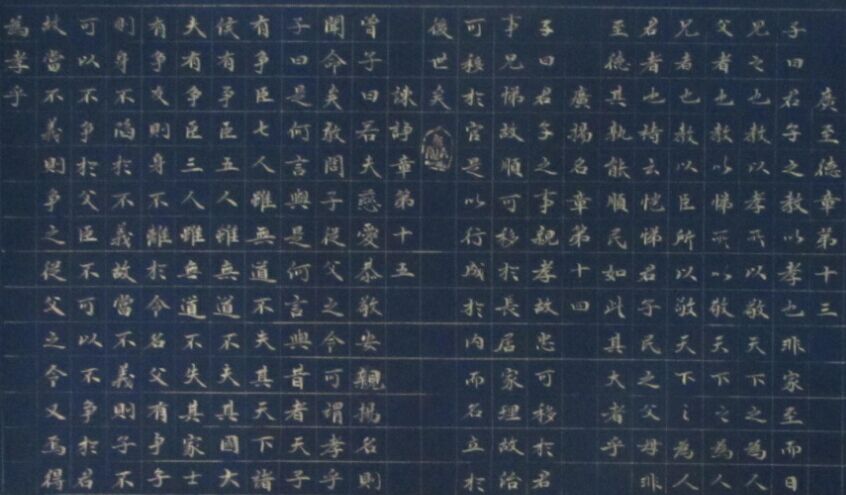 廣至德章第十三
子曰君子之教以孝也非家至而日
見之也教以孝所以敬天下之為人
父者也教以悌所以敬天下之為人
兄者也教以臣所以敬天下之為人
君者也詩云愷悌君子民之父母非
至德其孰能順民如此其大者乎
廣揚名章第十四
子曰君子之事親孝故忠可移於君
事兄悌故順可移於長居家理故治
可移於官是以行成於內而名立於
後世矣
諫諍章第十五
曾子曰若夫慈愛恭敬安親揚名則
聞命矣敢問子從父之令可謂孝乎
子曰是何言與是何言與昔者天子
有爭臣七人雖無道不失其天下諸
侯有爭臣五人雖無道不失其國大
夫有爭臣三人雖無道不失其家士
有爭友則身不離於令名父有爭子
則身不陷於不義故當不義則子不
可以不爭於父臣不可以不爭於君
故當不義則爭之從父之令又焉得
為孝乎